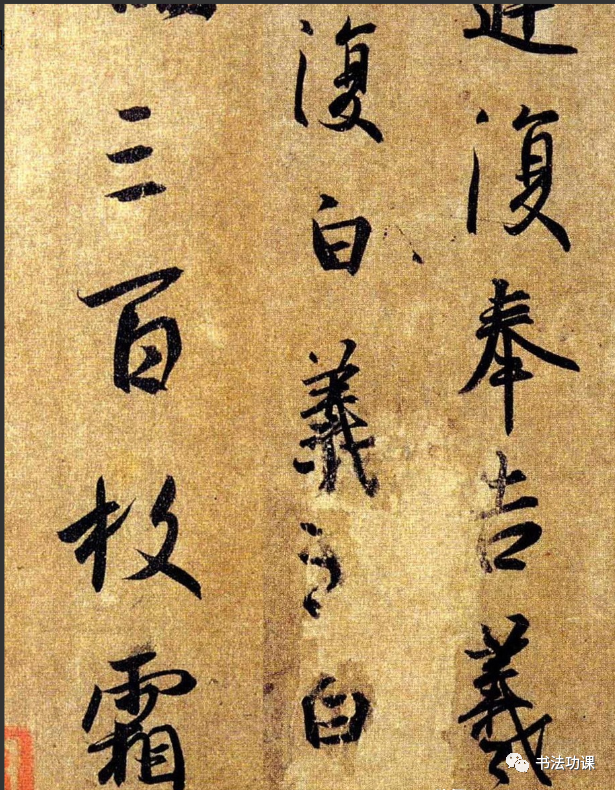 復奉告羲
復白羲之白
三百枚霜
书法功课